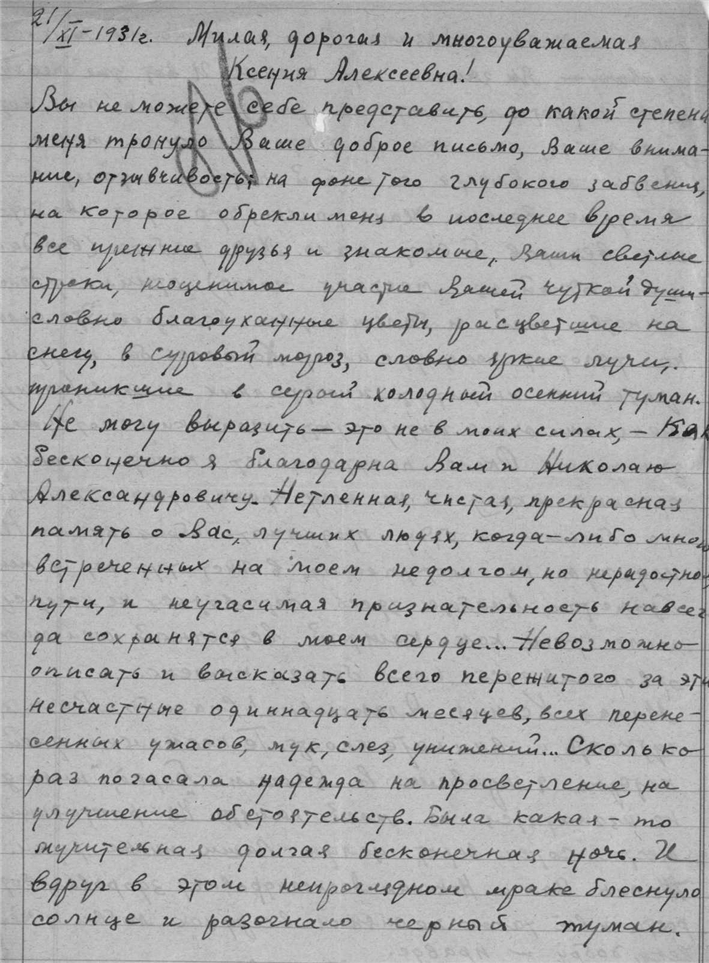 21/XI-1931г. Милая, дорогая и многоуважаемая
Ксения Алексеевна!
Вы не можете себе представить, до какой степени
меня тронуло Ваше доброе письмо, Ваше внима-
ние, отзывчивость; на фоне того глубокого забвения,
на которое обрекли меня в последнее время
все прежние друзья и знакомые, Ваши светлые
строки, неоценимое участие Вашей чуткой души –
словно благоуханные цветы, расцветшие на
снегу, в суровый мороз, словно яркие лучи,
проникшие в серый холодный осенний туман.
Не могу выразить – это не в моих силах, – как
бесконечно я благодарна Вам и Николаю
Александровичу. Нетленная, чистая, прекрасная
память о Вас, лучших людях, когда-либо мною
встреченных на моем недолгом, но нерадостном
пути, и неугасимая признательность навсег
да сохранятся в моем сердце... Невозможно
описать и высказать всего пережитого за эти
несчастные одиннадцать месяцев, всех перене-
сенных ужасов, мук, слез, унижений... Сколько
раз погасала надежда на просветление, на
улучшение обстоятельств. Была какая-то
мучительная долгая бесконечная ночь. И
вдруг в этом непроглядном мраке блеснуло
солнце и разогнало черный туман.